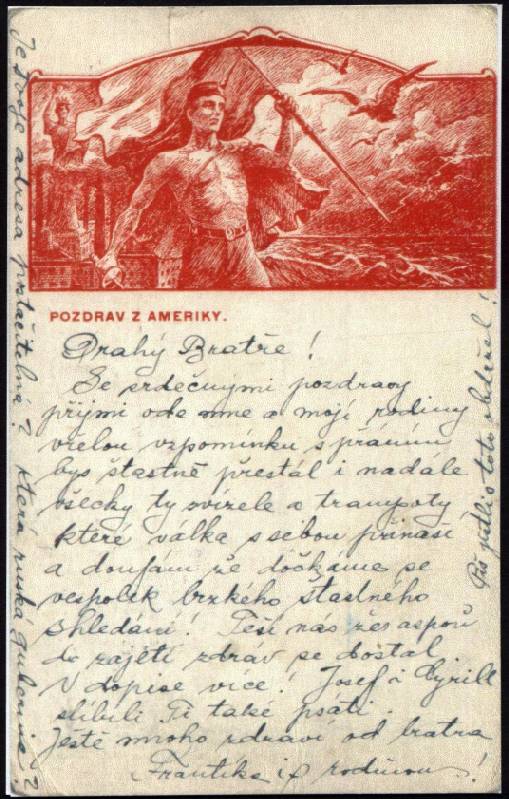 POZDRAV Z AMERIKY.
Drahý Bratře!
Se srdečnými pozdravy
přijmi ode mne a mojí rodiny
vřelou vzpomínku s přáním
bys šťastně přestál i nadále
všecky ty svízele a trampoty
které válka s sebou přináší
a doufám že dočkáme se
vespolek brzkého šťastného
shledání! Těší nás žes aspoň
do zajetí zdráv se dostal.
V dopise více! Josef i Cyrill
slíbili Ti také psáti.
Ještě mnoho zdraví od bratra
Frantíka i s rodinou!
Je Tvoje adresa postačitelná? která ruská gubernie?
Piš jestli toto obdržel!